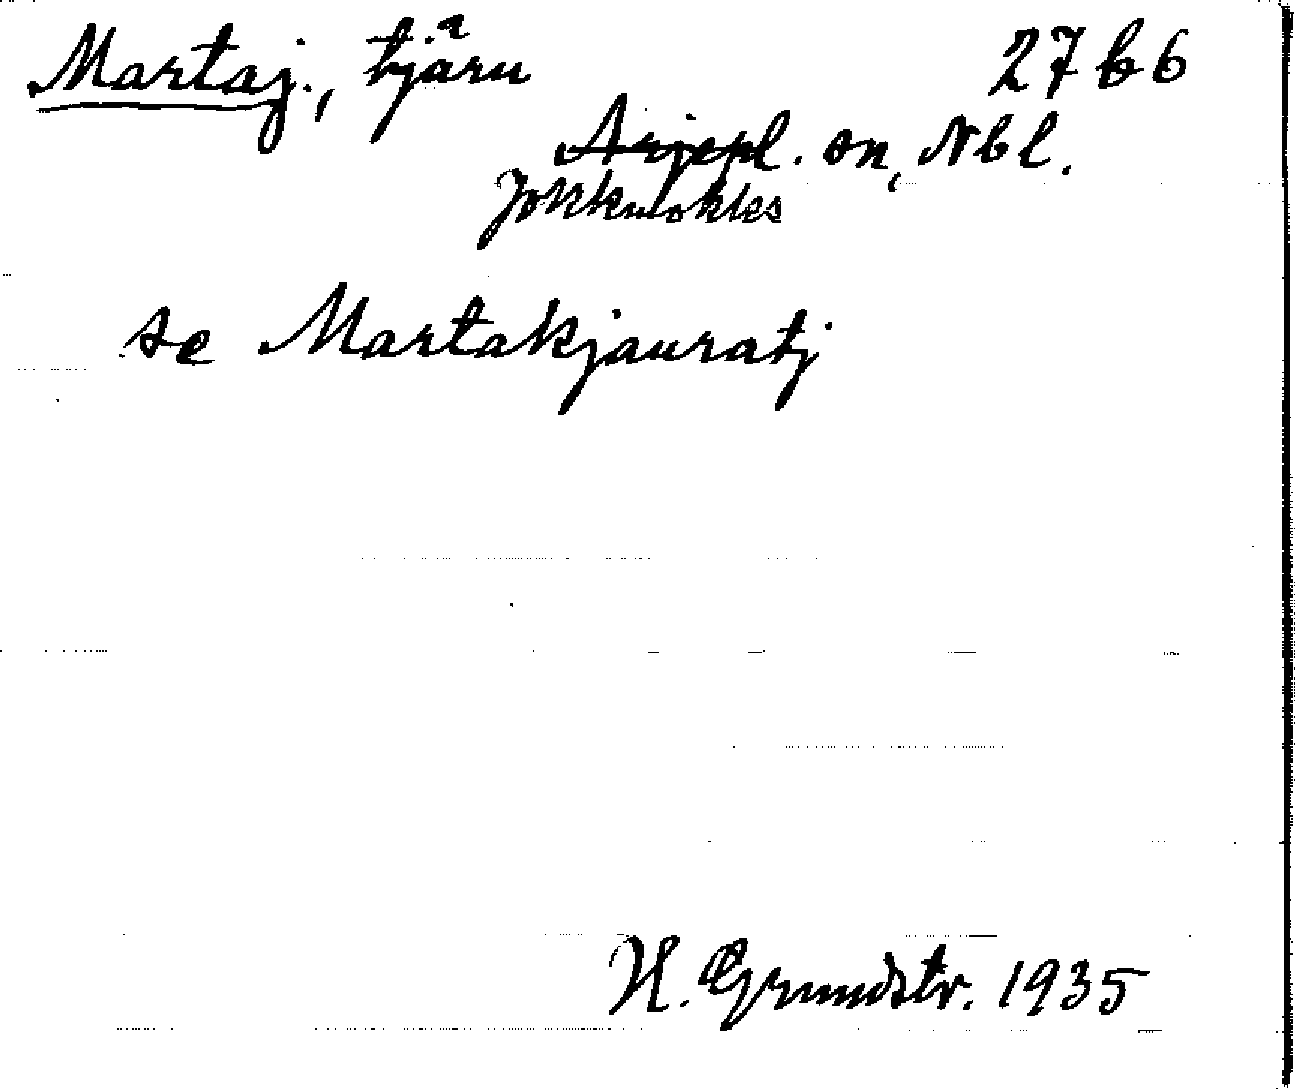 Martaj., tjärn 27 b 6
Arjepl. sn, Nbl.
Jokkmokks
se Martakjauratj
H. Grundstr. 1935